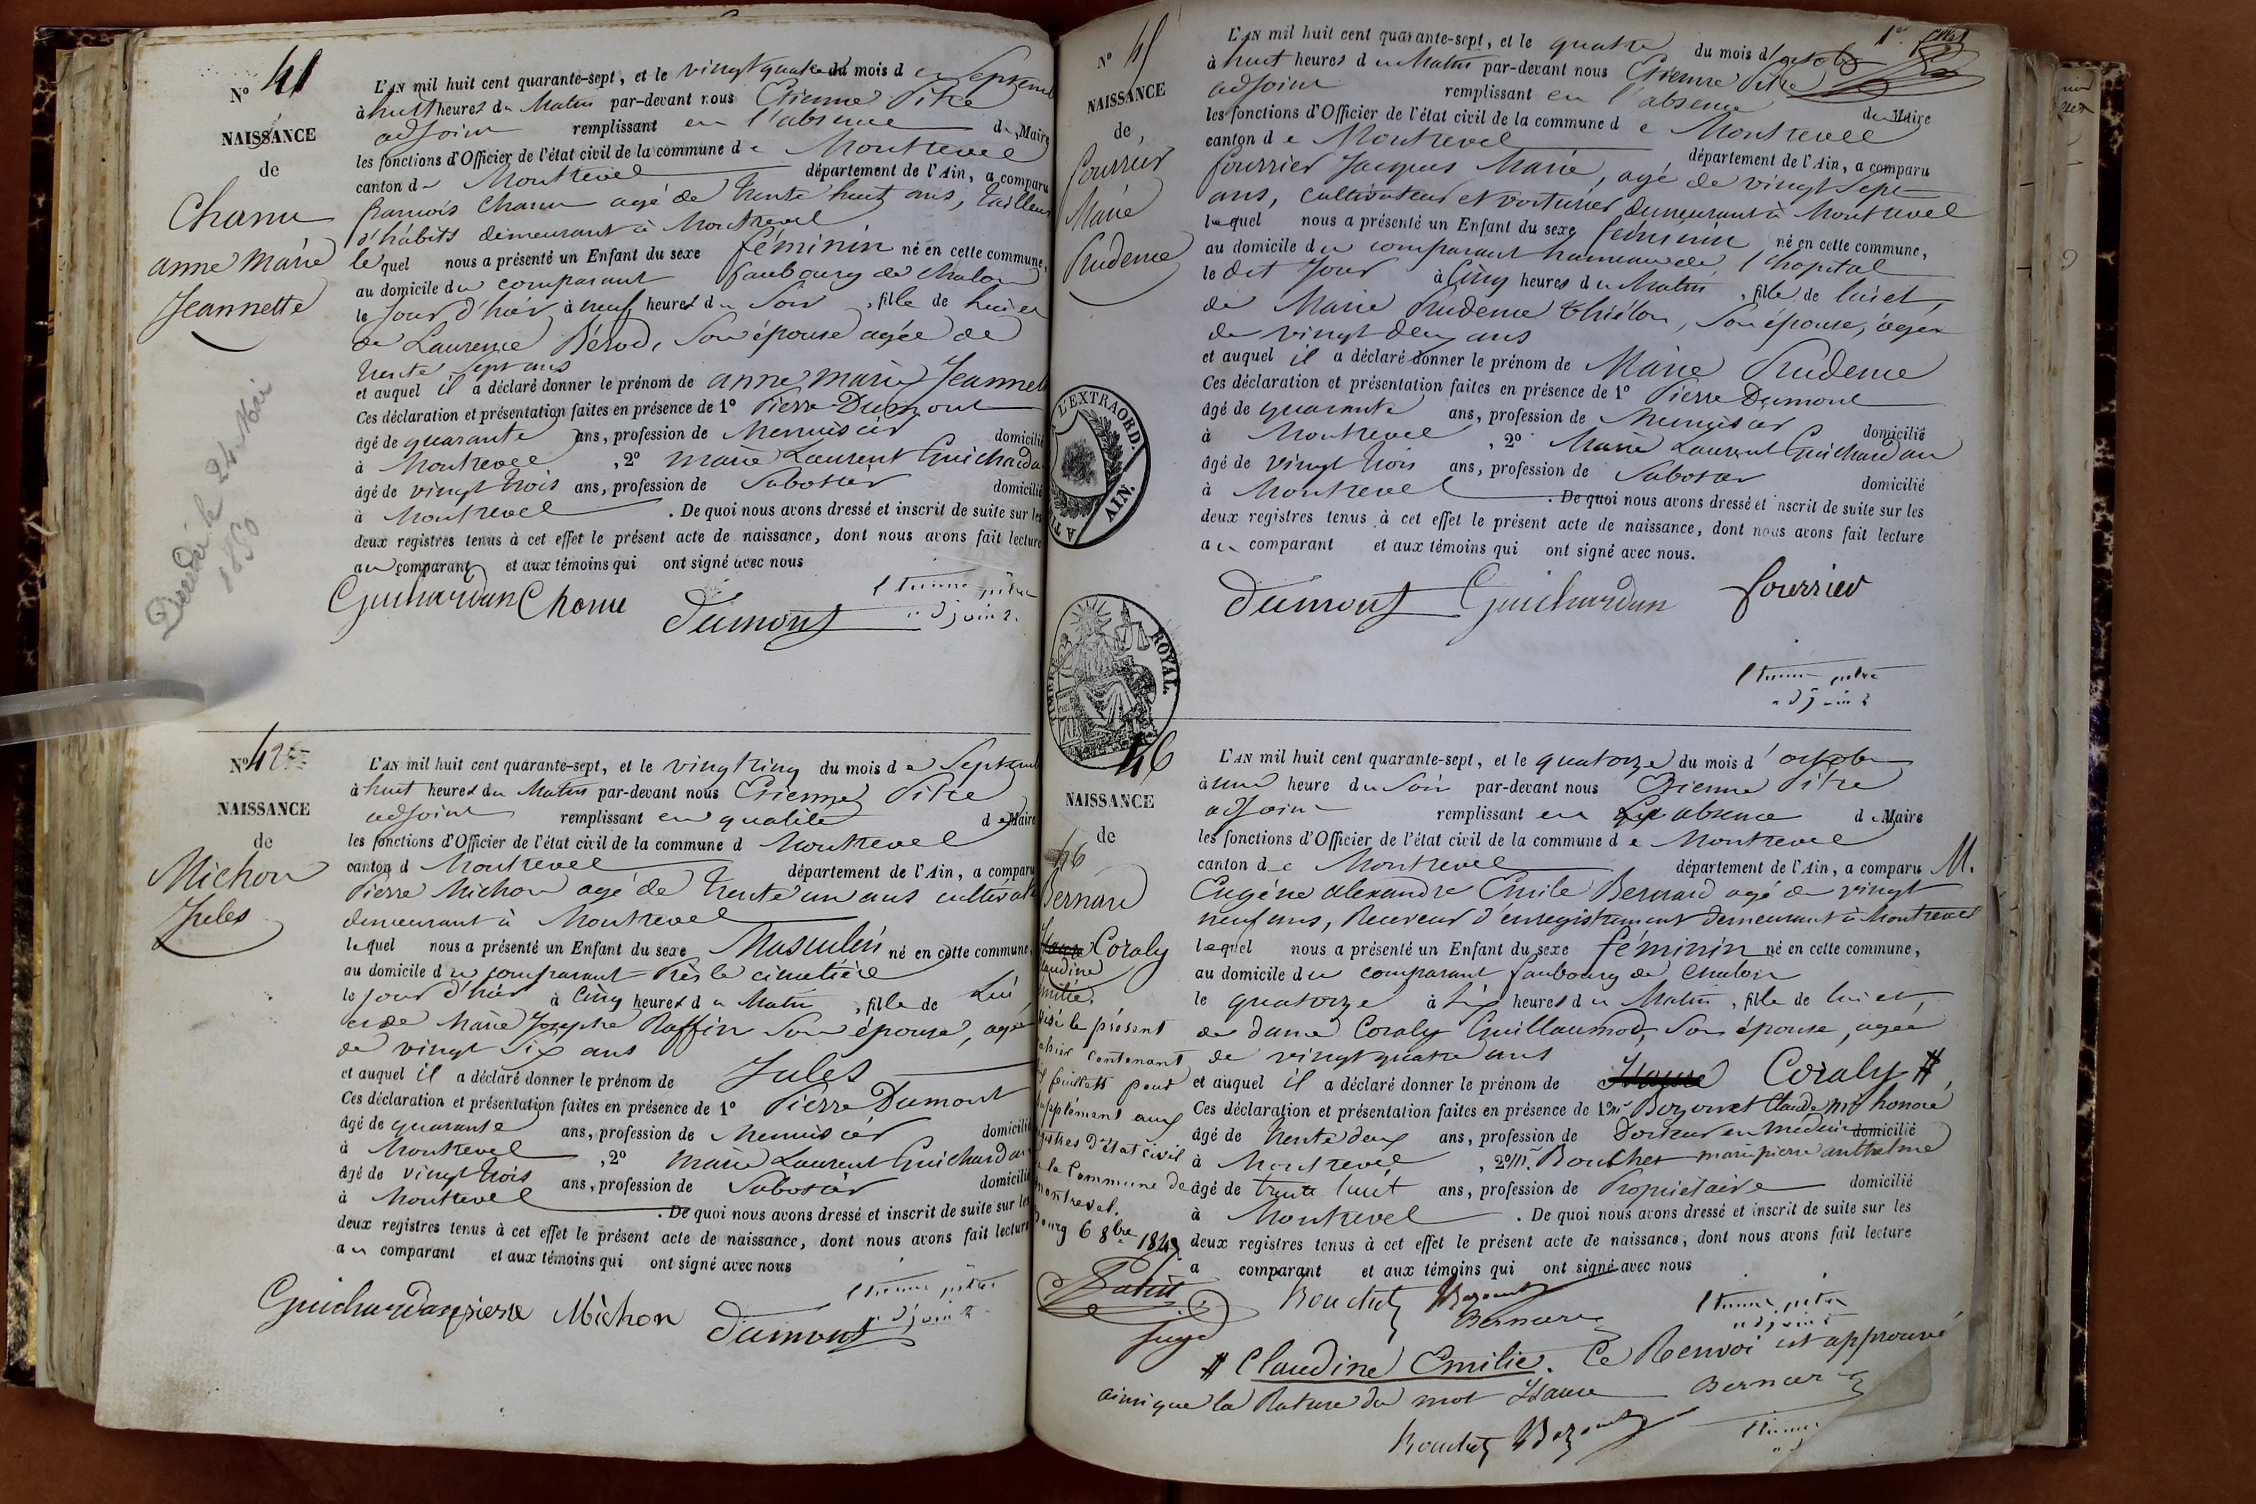 N° 41
NAISSANCE
de
Chanu
anne Marie
Jeannette
Décédée le 24 Mai
1850
L'AN mil huit cent quarante-sept, et le vingt quatre du mois de Septemb
à huit heures du Matin par-devant nous Etienne Pitre
adjoint remplissant en l'absence du Maire
les fonctions d'Officier de l'état civil de la commune de Montrevel
canton de Montrevel département de l'Ain, a comparu
francois Chanu agé de trente huit ans, tailleur
d'habits demeurant à Montrevel
lequel nous a présenté un Enfant du sexe féminin né en cette commune,
au domicile du comparant faubourg de Chalon
le jour d'hier à neuf heures du Soir, fille de lui et
de Laurence Bérod, Son épouse agée de
trente sept ans
et auquel il a déclaré donner le prénom de anne marie Jeannet
Ces déclaration et présentation faites en présence de 1° Pierre Dumont
âgé de quarante ans, profession de Menuisier domicilié
à Montrevel, 2° Marie Laurent Guichardan
âgé de vingt trois ans, profession de Sabotier domicilié
à Montrevel. De quoi nous avons dressé et inscrit de suite sur les
deux registres tenus à cet effet le présent acte de naissance, dont nous avons fait lecture
au comparant et aux témoins qui ont signé avec nous
Guichardan Chanu Dumont Etienne pitre
adjoint
N° 42
NAISSANCE
de
Michon
Jules
L'AN mil huit cent quarante-sept, et le vingt cinq du mois de Septemb
à huit heures du Matin par-devant nous Etienne Pitre
adjoint remplissant en qualité de Maire
les fonctions d'Officier de l'état civil de la commune d Montrevel
canton d Montrevel département de l'Ain, a comparu
Pierre Michon agé de trente un ans cultivat
demeurant à Montrevel
lequel nous a présenté un Enfant du sexe Masculin né en cette commune,
au domicile du comparant Près le cimetière
le jour d'hier à cinq heures du Matin, fille de Lui
et de Marie Josephe Raffin Son épouse, agée
de vingt six ans
et auquel il a déclaré donner le prénom de Jules
Ces déclaration et présentation faites en présence de 1° Pierre Dumont
âgé de quarante ans, profession de Menuisier domicilié
à Montrevel, 2° Marie Laurent Guichardan
âgé de vingt trois ans, profession de Sabotier domicilié
à Montrevel. De quoi nous avons dressé et inscrit de suite sur les
deux registres tenus à cet effet le présent acte de naissance, dont nous avons fait lecture
au comparant et aux témoins qui ont signé avec nous
Guichardan pierre Michon Dumont Etienne pitre
adjoint
1er
N° 45
NAISSANCE
de
fourrier
Marie
Prudence
L'AN mil huit cent quarante-sept, et le quatre du mois d'octobre
à huit heures du Matin par-devant nous Etienne Pitre
adjoint remplissant en l'absence du Maire
les fonctions d'Officier de l'état civil de la commune de Montrevel
canton de Montrevel département de l'Ain, a comparu
fourrier Jacques Marie, agé de vingt sept
ans, cultivateur et voiturier demeurant à Montrevel
lequel nous a présenté un Enfant du sexe féminin né en cette commune,
au domicile du comparant hameau de l'hopital
le dit Jour à Cinq heures du Matin, fille de lui et,
de Marie Prudence Thiélon, Son épouse, agée
de vingt deux ans
et auquel il a déclaré donner le prénom de Marie Prudence
Ces déclaration et présentation faites en présence de 1° Pierre Dumont
âgé de quarante ans, profession de Menuisier domicilié
à Montrevel, 2° Marie Laurent Guichardan
âgé de vingt trois ans, profession de Sabotier domicilié
à Montrevel. De quoi nous avons dressé et inscrit de suite sur les
deux registres tenus à cet effet le présent acte de naissance, dont nous avons fait lecture
au comparant et aux témoins qui ont signé avec nous.
Dumont Guichardan fourrier
Etienne pitre
adjoint
L'EXTRAORD.
AIN.
TIMBRE ROYAL.
46
NAISSANCE
de
46
Bernard
Coraly
Claudine
Emilie
Visé le présent
cahier contenant
feuillets pour
supplément aux
registres d'état civil
de la Commune de
Montrevel.
Bourg 6 8bre 1847
Juge
L'AN mil huit cent quarante-sept, et le quatorze du mois d'octobre
à une heure du Soir par-devant nous Etienne Pitre
adjoint remplissant en absence du Maire
les fonctions d'Officier de l'état civil de la commune de Montrevel
canton de Montrevel département de l'Ain, a comparu M.
Eugène alexandre Emile Bernard agé de vingt
neuf ans, Receveur d'enregistrement demeurant à Montrevel
lequel nous a présenté un Enfant du sexe féminin né en cette commune,
au domicile du comparant faubourg de Chalon
le quatorze à Six heures du Matin, fille de lui et,
de dame Coraly Guillaumod, Son épouse, agée
de vingt quatre ans
et auquel il a déclaré donner le prénom de Coraly #,
Ces déclaration et présentation faites en présence de 1° Mr Bozonet Claude Mie honoré
âgé de trente deux ans, profession de Docteur en médecine domicilié
à Montrevel, 2° Mr Bouchet marie pierre anthelme
âgé de trente huit ans, profession de Propriétaire domicilié
à Montrevel. De quoi nous avons dressé et inscrit de suite sur les
deux registres tenus à cet effet le présent acte de naissance, dont nous avons fait lecture
a comparant et aux témoins qui ont signé avec nous
Bouchet Bozonet Bernard Etienne pitre
adjoint
# Claudine Emilie. Ce Renvoi est approuvé
ainsi que la Rature du mot Bernard
Bouchet Bozonet Etienne